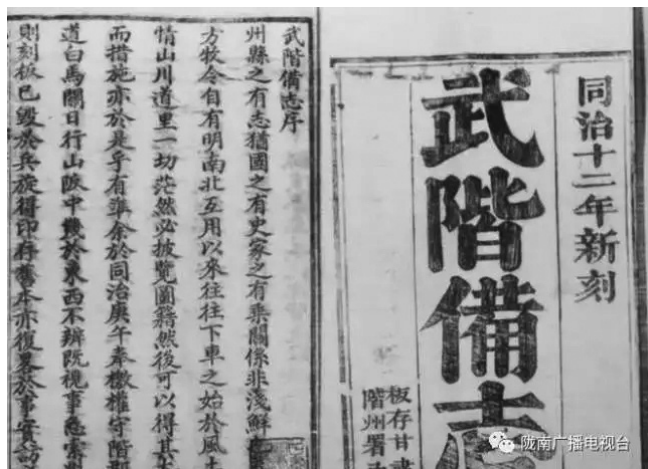 同治十二年新刻
武階備志
板存甘肅
階州署
武階備志序
州縣之有志猶國之有史家之有乘關係非淺鮮
方牧令自有明南北互用以來往往下車之始於風土
情山川道里一切茫然必披覽圖籍然後可以得其
而措施亦於是乎有準余於同治庚午奉檄權守階
道白馬關日行山陂中幾於東西不辨既視事急索
則刻板已毀於兵旋得印存舊本亦復畧於事實訪
陇南广播电视台